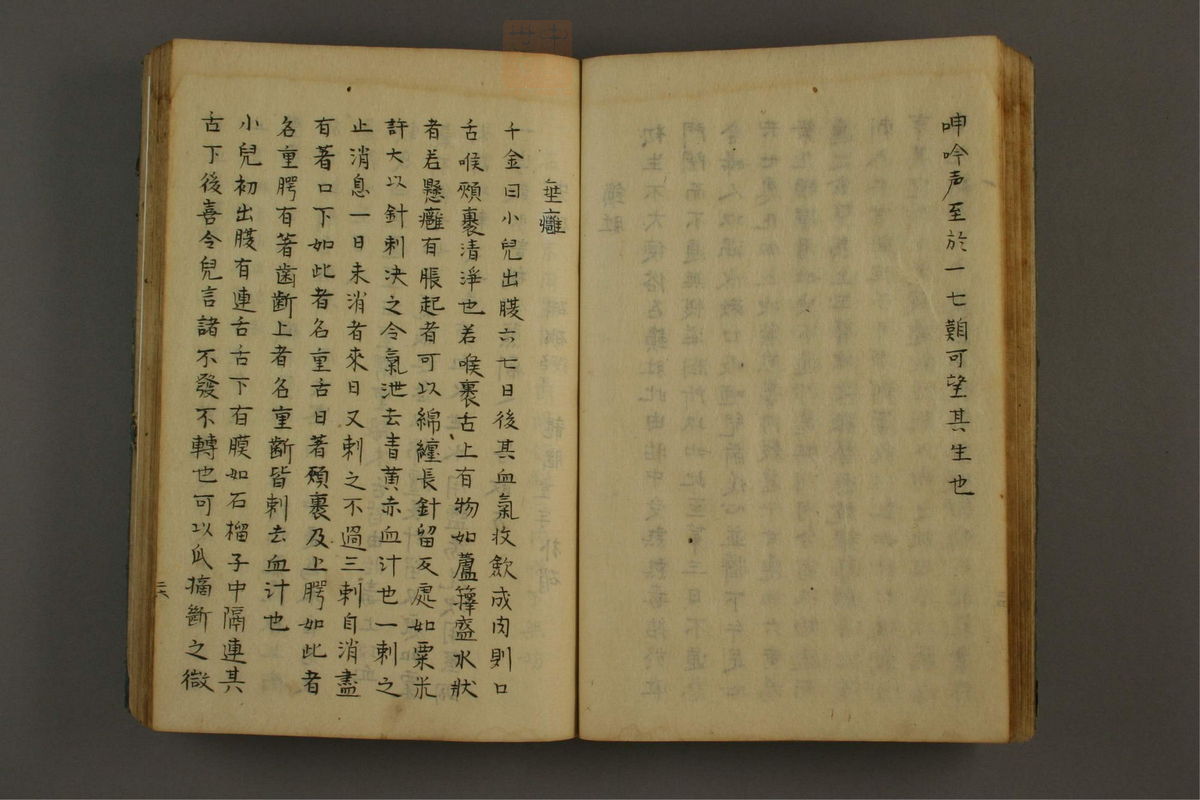 呻吟声至於一七難可望其生也
垂癰
千金曰小兒出腹六七日後其血氣收歛成肉則口
舌喉頰裹清淨也若喉裹舌上有物如蘆籜盛水狀
者若懸癰有脹起者可以綿纏長針留刃處如粟米
許大以針刺决之令氣泄去青黃赤血汁也一刺之
止消息一日未消者來日又刺之不過三刺自消盡
有著口下如此者名重舌曰著頰裹及上腭如此者
名重腭有著齒斷上者名重斷皆刺去血汁也
小兒初出腹有連舌舌下有膜如石榴子中隔連其
舌下後喜令兒言諸不發不轉也可以爪摘斷之微